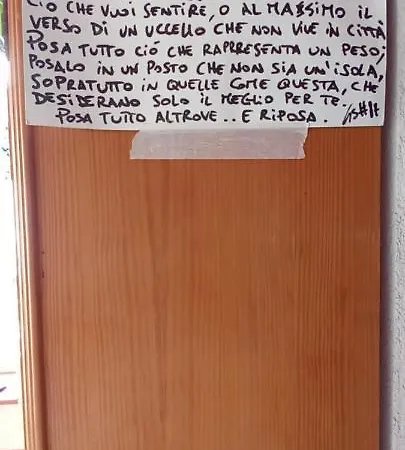 CIÒ CHE VUOI SENTIRE, O AL MASSIMO IL
VERSO DI UN UCCELLO CHE NON VIVE IN CITTÀ
POSA TUTTO CIÓ CHE RAPPRESENTA UN PESO;
POSALO IN UN POSTO CHE NON SIA UN'ISOLA,
SOPRATUTTO IN QUELLE COME QUESTA, CHE
DESIDERANO SOLO IL MEGLIO PER TE.
POSA TUTTO ALTROVE.. E RIPOSA.